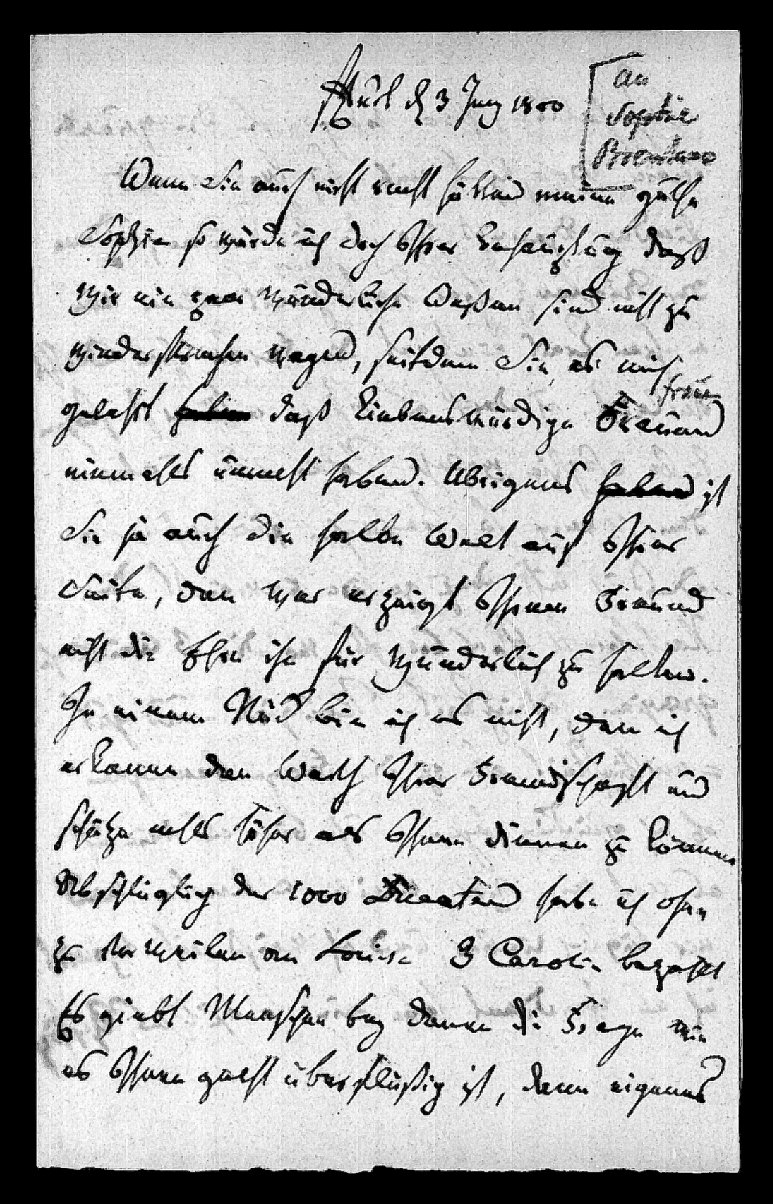 d 3 Juny 1800
an
Sophie
Brentano
Wenn Sie auch nicht recht hätten meine guthe
Sophie so würde ich doch Ihrer Behauptung daß
wir ein paar wunderliche Wesen sind nicht zu
wiedersprechen wagen, seitdem Sie es mich
gelehrt haben daß liebenswürdige Frauen
niemahls unrecht haben. Übrigens haben ist
Sie ja auch die halbe Welt auf Ihrer
Seite, den wer erzeigt Ihrem Freund
nicht die Ehre ihn für wunderlich zu halten.
In einem Stück bin ich es nicht, den ich
erkenne den Werth Ihrer Freundschafft und
schätze nichts höher als Ihnen dienen zu können
Abschläglich der 1000 Ducaten habe ich ohne
zu verweilen an Louise 3 Carolin bezahlt
Es giebt Menschen bey denen die Frage wie
es Ihnen geht überflüßig ist, denn eigenes